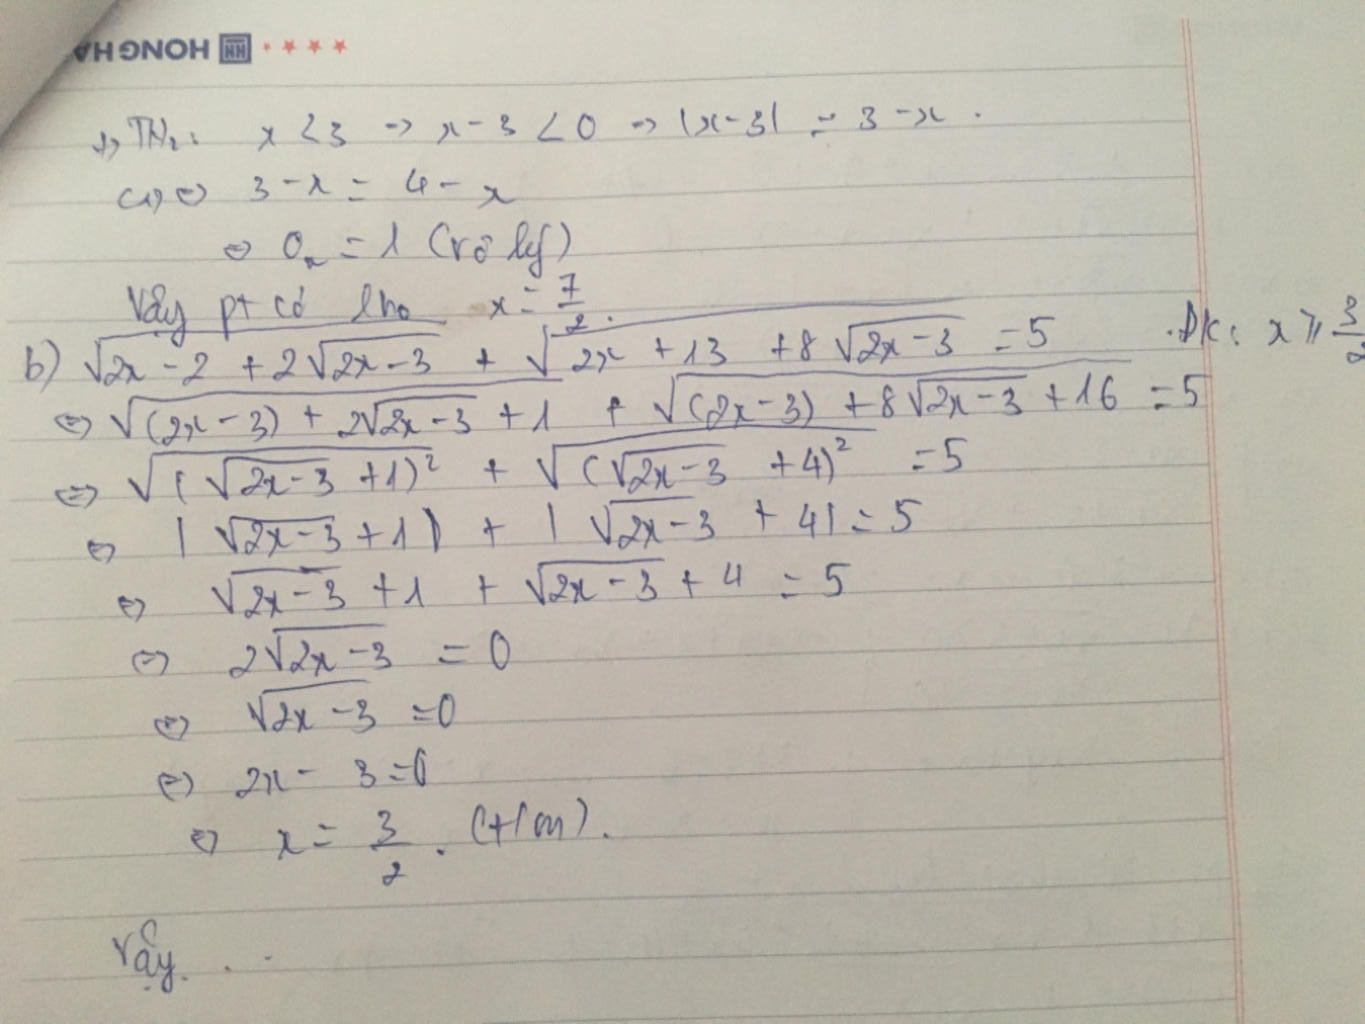 HONG HA
+) TH2: x < 3 → x - 3 < 0 → |x-3| = 3 - x.
(1) ⇔ 3 - x = 4 - x
⇔ 0x = 1 (vô lý)
Vậy pt có x = 7/2.
b) √(2x - 2 + 2√(2x-3)) + √(2x + 13 + 8√(2x-3)) = 5 ĐK: x ⩾ 3/2
⇔ √((2x-3) + 2√(2x-3) + 1) + √((2x-3) + 8√(2x-3) + 16) = 5
⇔ √((√(2x-3) + 1)²) + √((√(2x-3) + 4)²) = 5
⇔ |√(2x-3) + 1| + |√(2x-3) + 4| = 5
⇔ √(2x-3) + 1 + √(2x-3) + 4 = 5
⇔ 2√(2x-3) = 0
⇔ √(2x-3) = 0
⇔ 2x - 3 = 0
⇔ x = 3/2. (t/m).
Vậy...